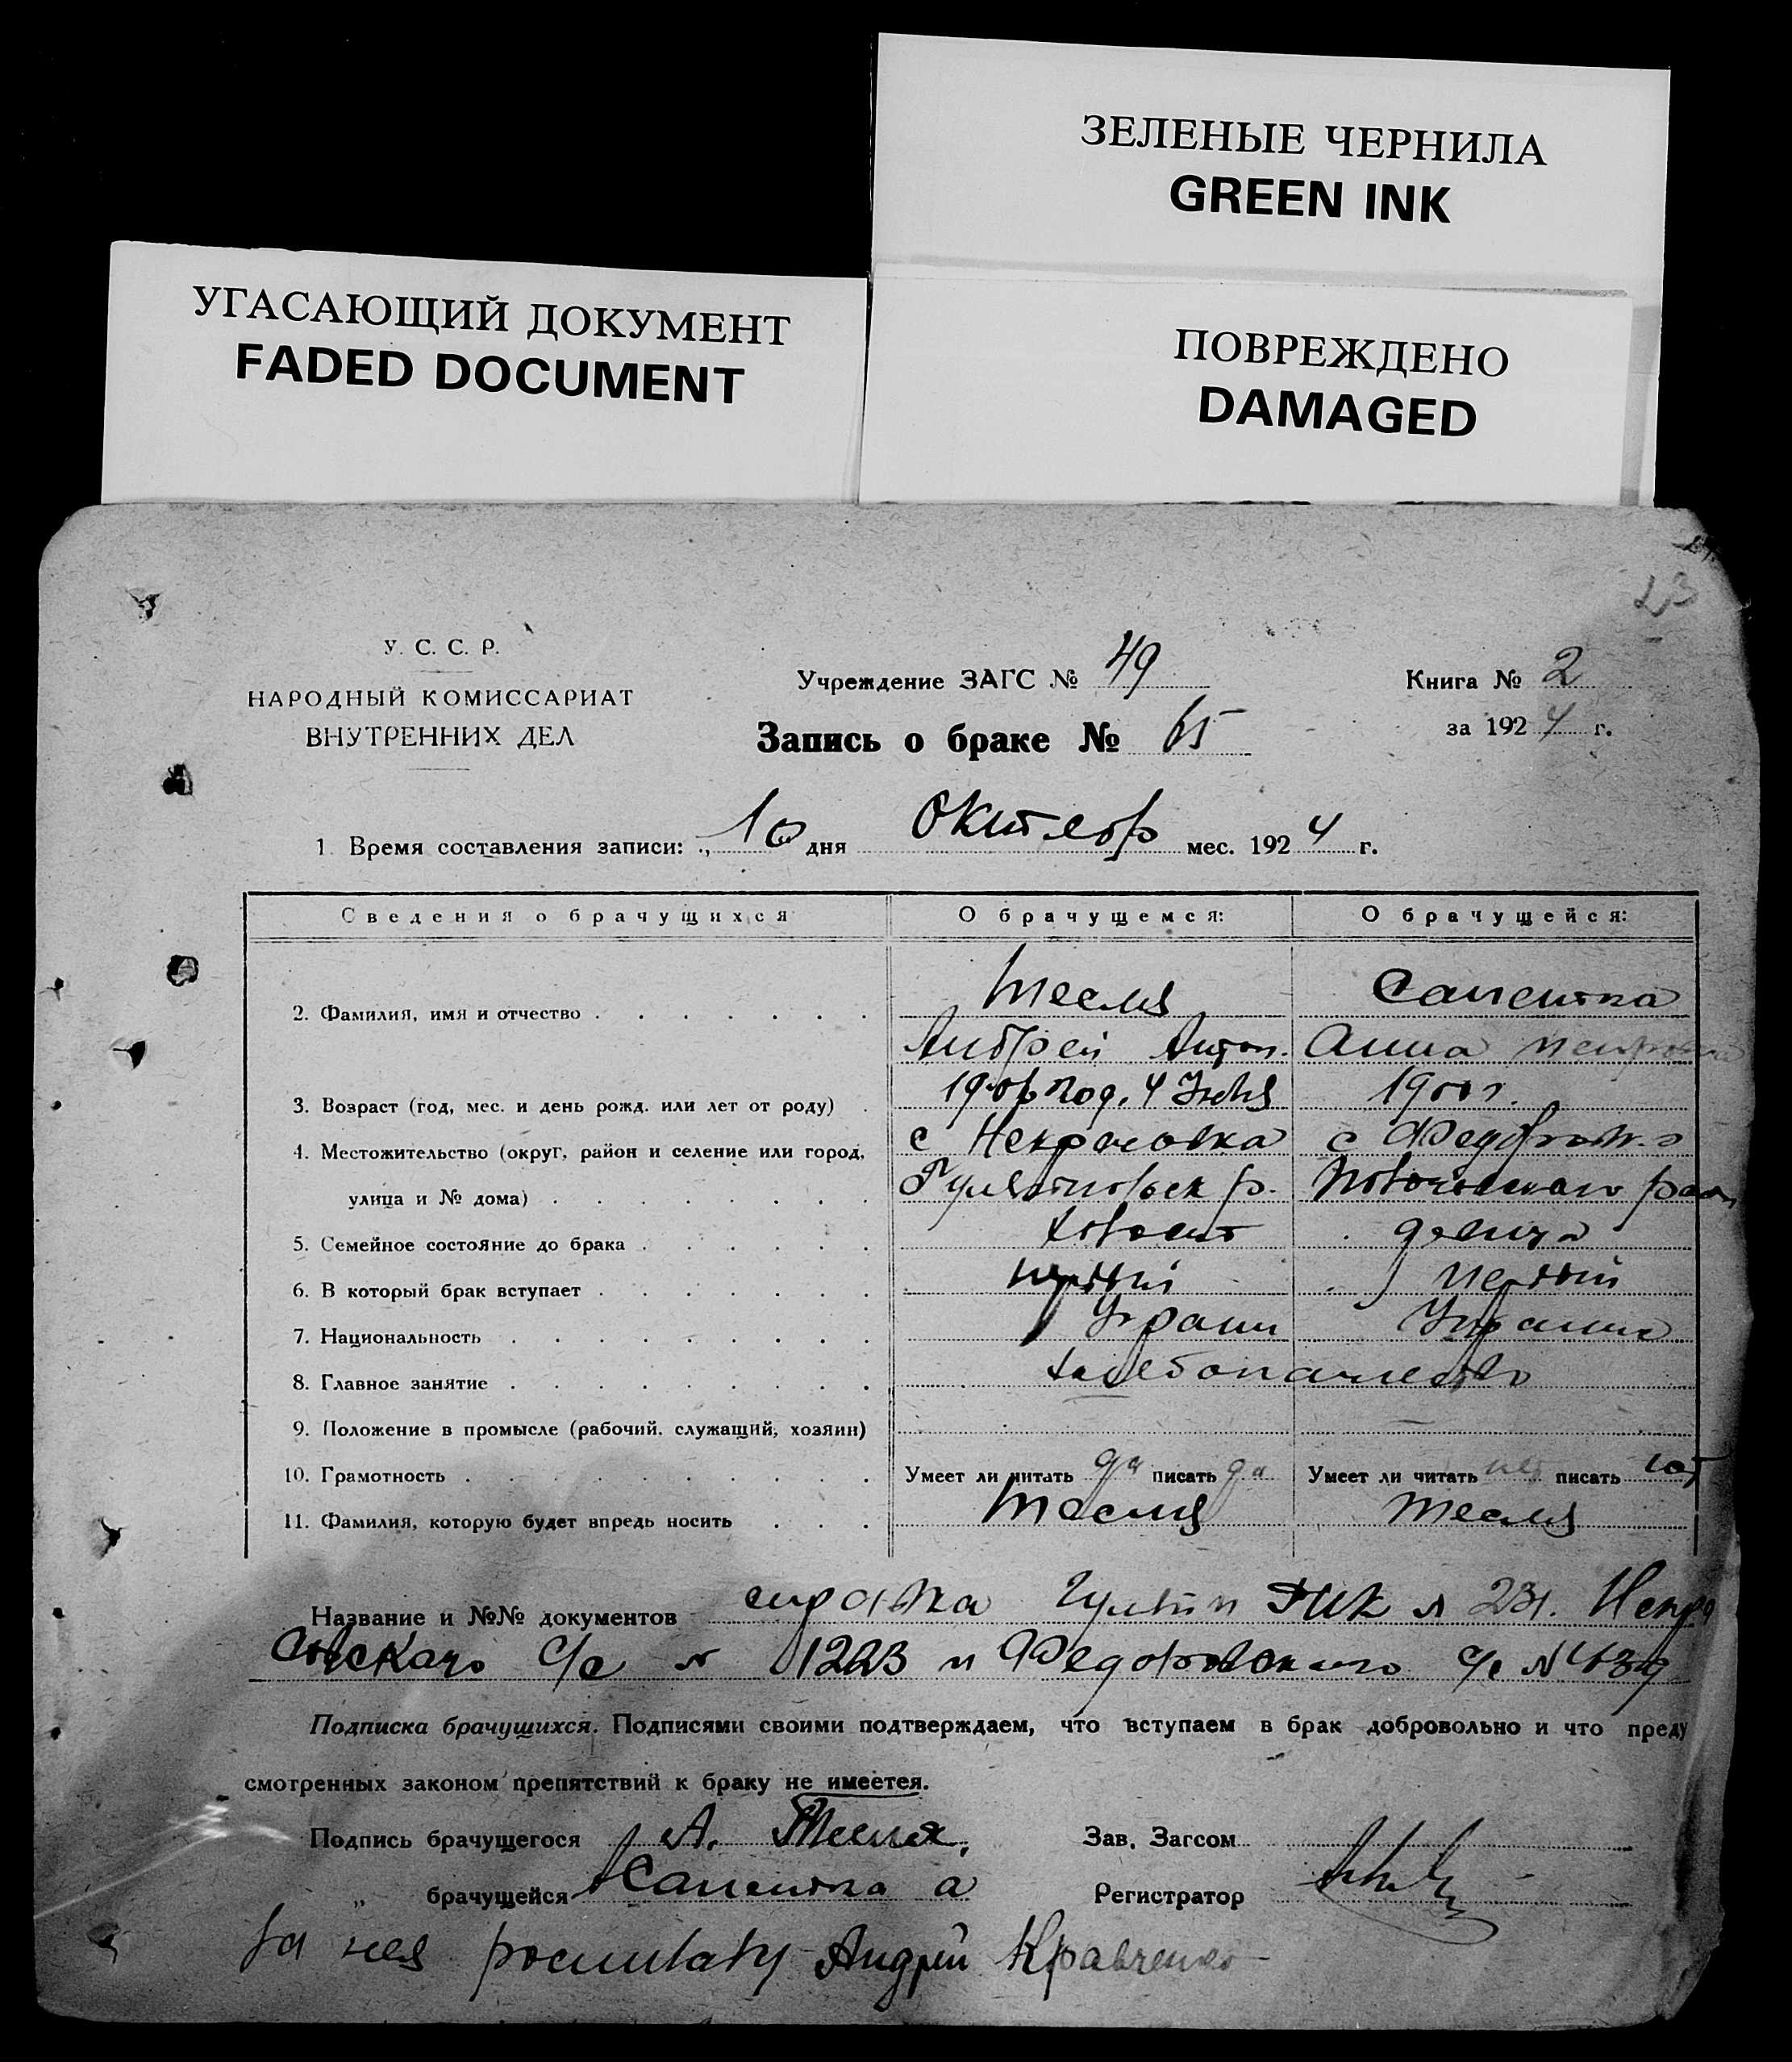 ЗЕЛЕНЫЕ ЧЕРНИЛА
GREEN INK
УГАСАЮЩИЙ ДОКУМЕНТ
FADED DOCUMENT
ПОВРЕЖДЕНО
DAMAGED
23
У. С. С. Р.
НАРОДНЫЙ КОМИССАРИАТ
ВНУТРЕННИХ ДЕЛ
Учреждение ЗАГС № 49
Запись о браке № 65
Книга № 2
за 1924 г.
1 Время составления записи: „ 10 дня октябр мес. 1924 г.
Сведения о брачущихся О брачущемся: О брачущейся:
2. Фамилия, имя и отчество Тесля
Андрей Антон. Анна Петровна
3. Возраст (год, мес. и день рожд. или лет от роду) год. 4 1900 г.
4. Местожительство (округ, район и селение или город, с Некрасовка с
улица и № дома) р.
5. Семейное состояние до брака холост девица
6. В который брак вступает первый первый
7. Национальность Украин Украинка
8. Главное занятие хлебопашество
9. Положение в промысле (рабочий, служащий, хозяин)
10. Грамотность Умеет ли читать да писать да Умеет ли читать нет писать нет
11. Фамилия, которую будет впредь носить Тесля Тесля
Название и №№ документов справка РИК № 231. Некра
совского С/с № 1223 и Федоровского с/с № 439
Подписка брачущихся. Подписями своими подтверждаем, что вступаем в брак добровольно и что преду
смотренных законом препятствий к браку не имеется.
Подпись брачущегося А. Тесля Зав. Загсом
„ брачущейся а Регистратор
за нея Андрій Кравченко